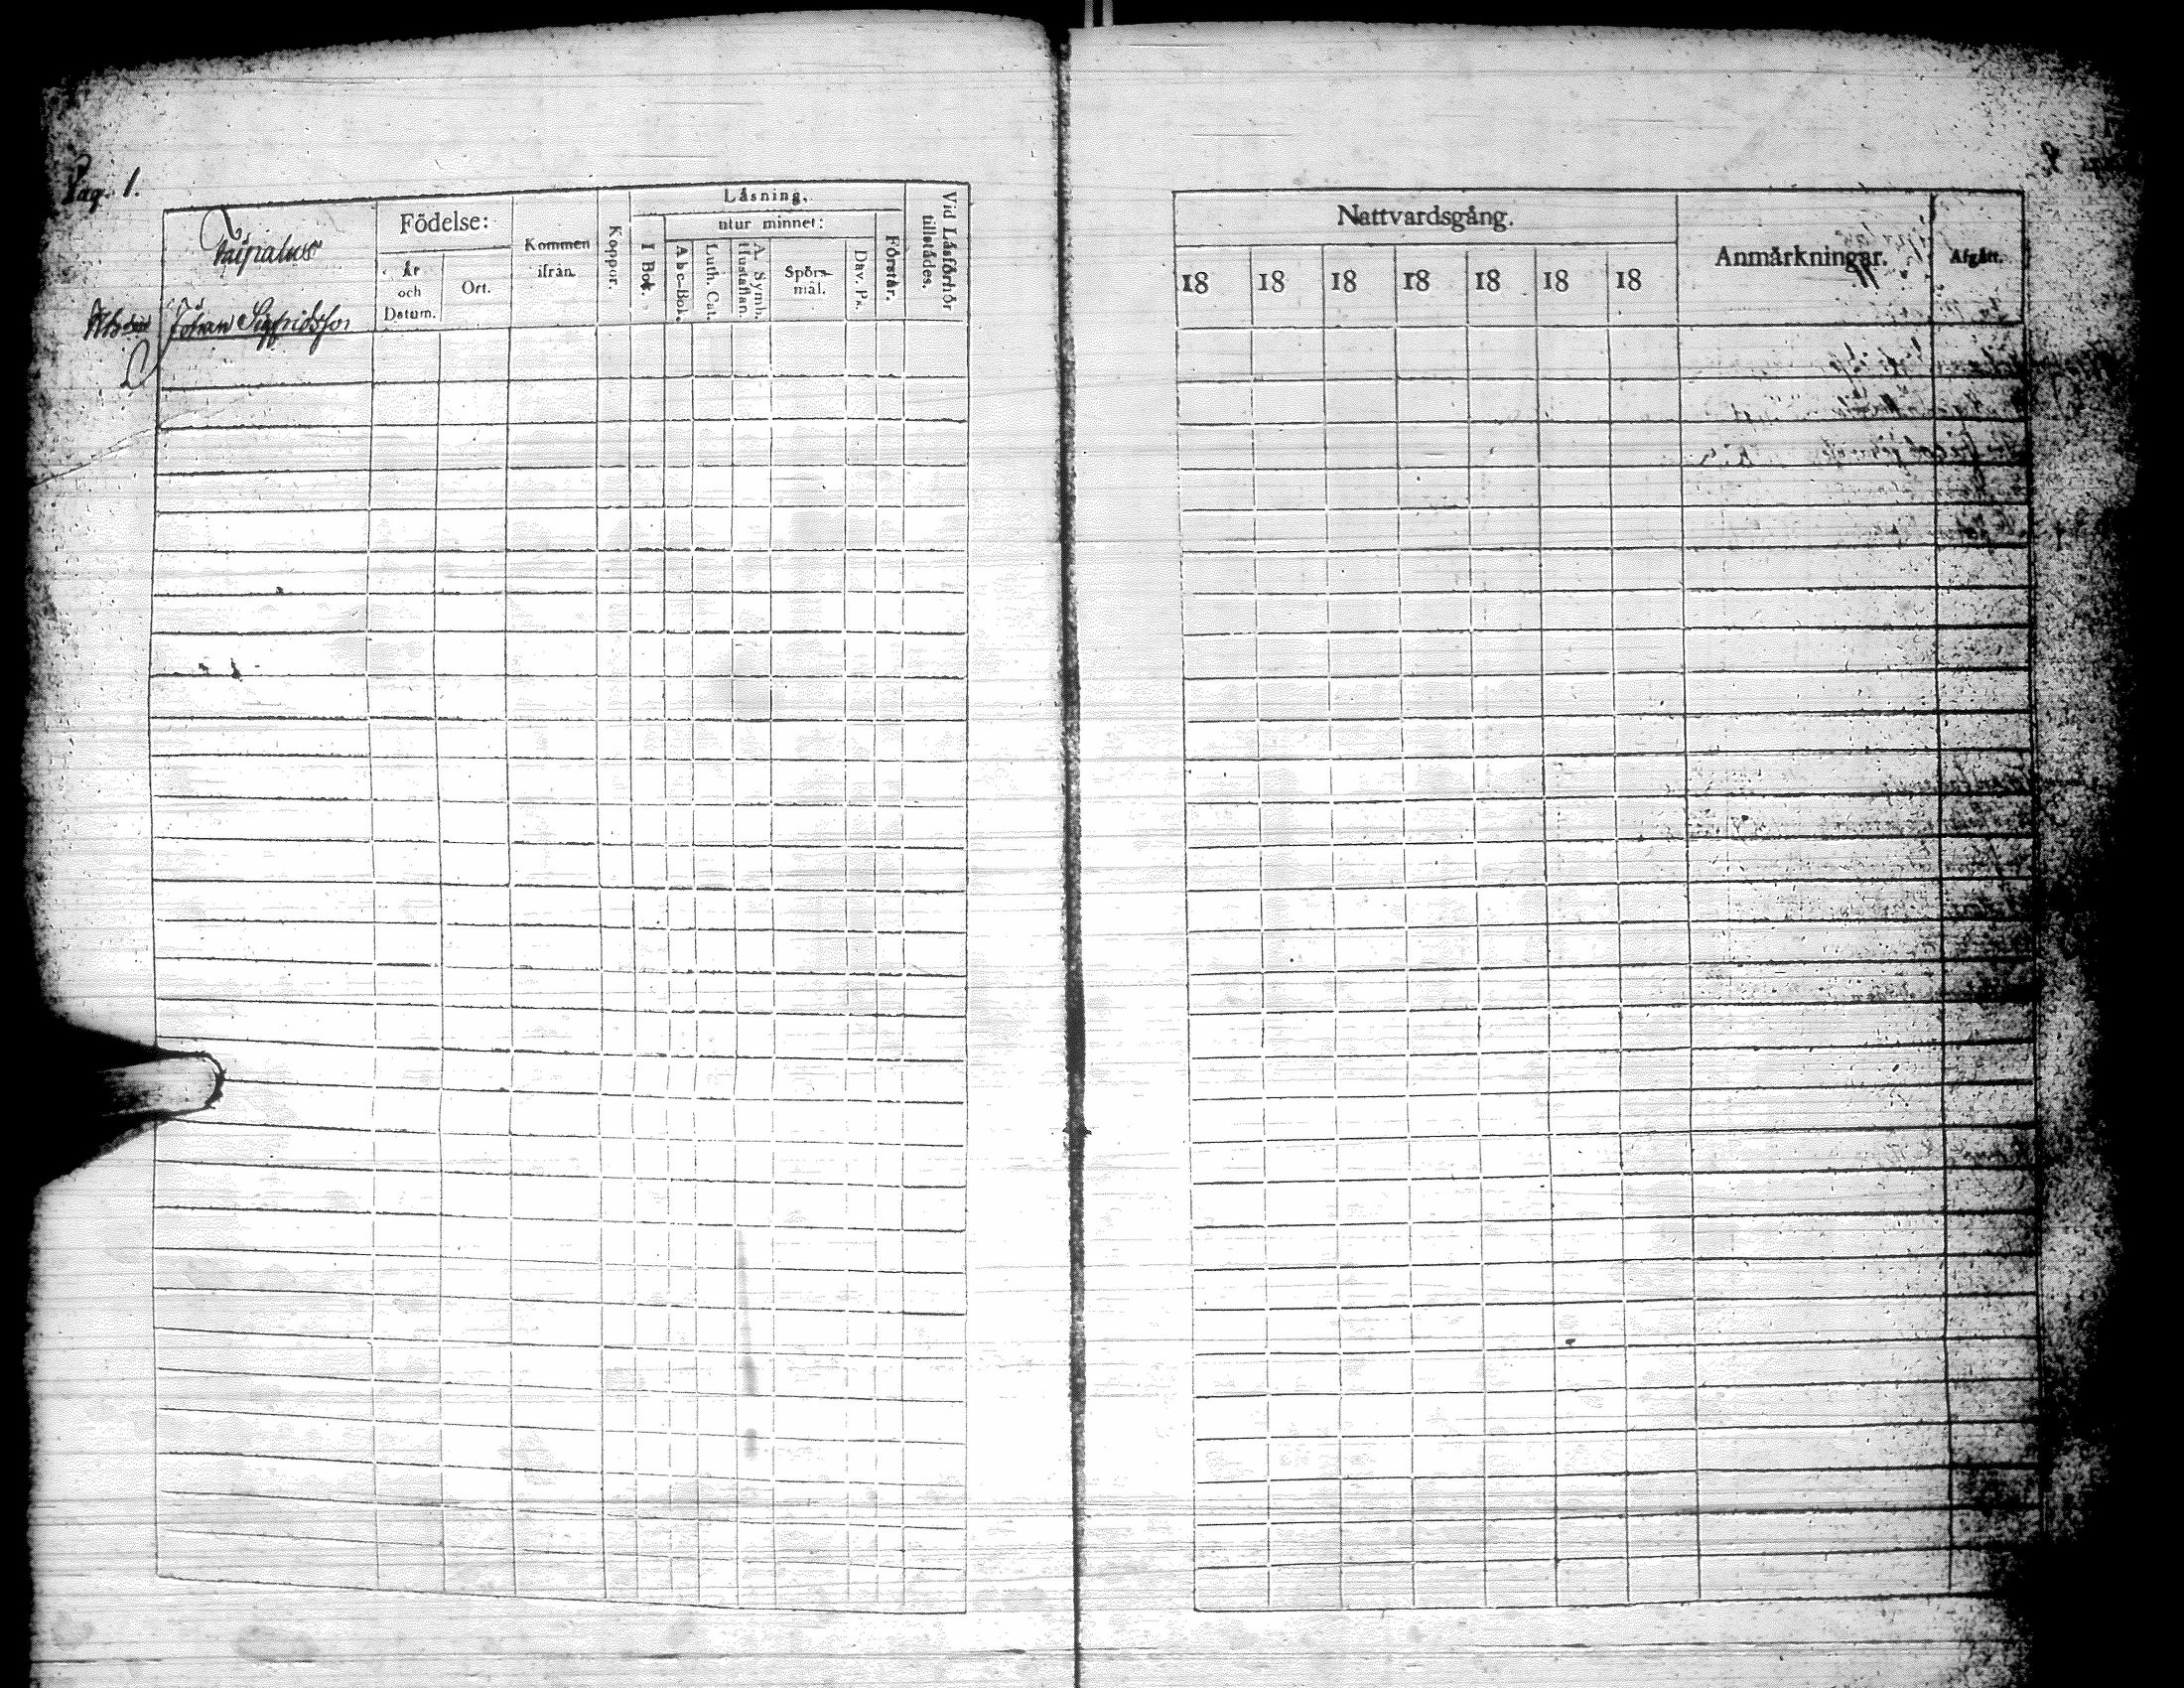 Pag. 1.
Taipalus
Födelse:
År och Datum.
Ort.
Kommen ifrån
Koppor.
Låsning.
I Bok.
utur minnet:
Abc-Bok.
Luth. Cat.
A. Symb. Hustaflan.
Spörsmål.
Dav. Ps.
Förstår.
Vid Låsförhör tillstådes.
Johan Sigfridsson
Nattvardsgång.
18 18 18 18 18 18 18
Anmårkningar.
Afgått.